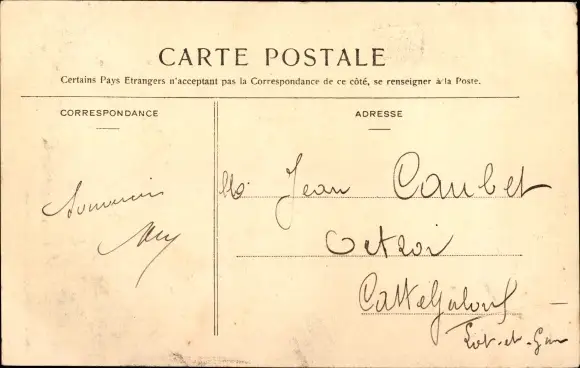 CARTE POSTALE
Certains Pays Etrangers n'acceptant pas la Correspondance de ce côté, se renseigner à la Poste.
CORRESPONDANCE
ADRESSE
Souvenir
Jean Caubet
Octroi
Casteljaloux
Lot-et-Gar